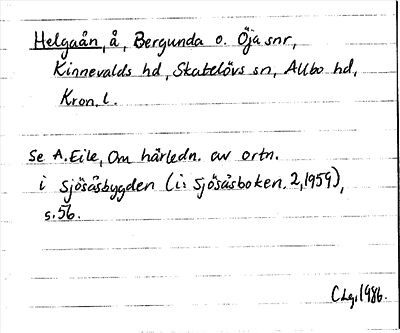 Helgaån, å, Bergunda o. Öja snr,
Kinnevalds hd, Skatelövs sn, Allbo hd,
Kron. l.
Se A. Eile, Om härledn. av ortn.
i Sjösåsbygden (i: Sjösåsboken. 2, 1959),
s. 56.
CLg, 1986.